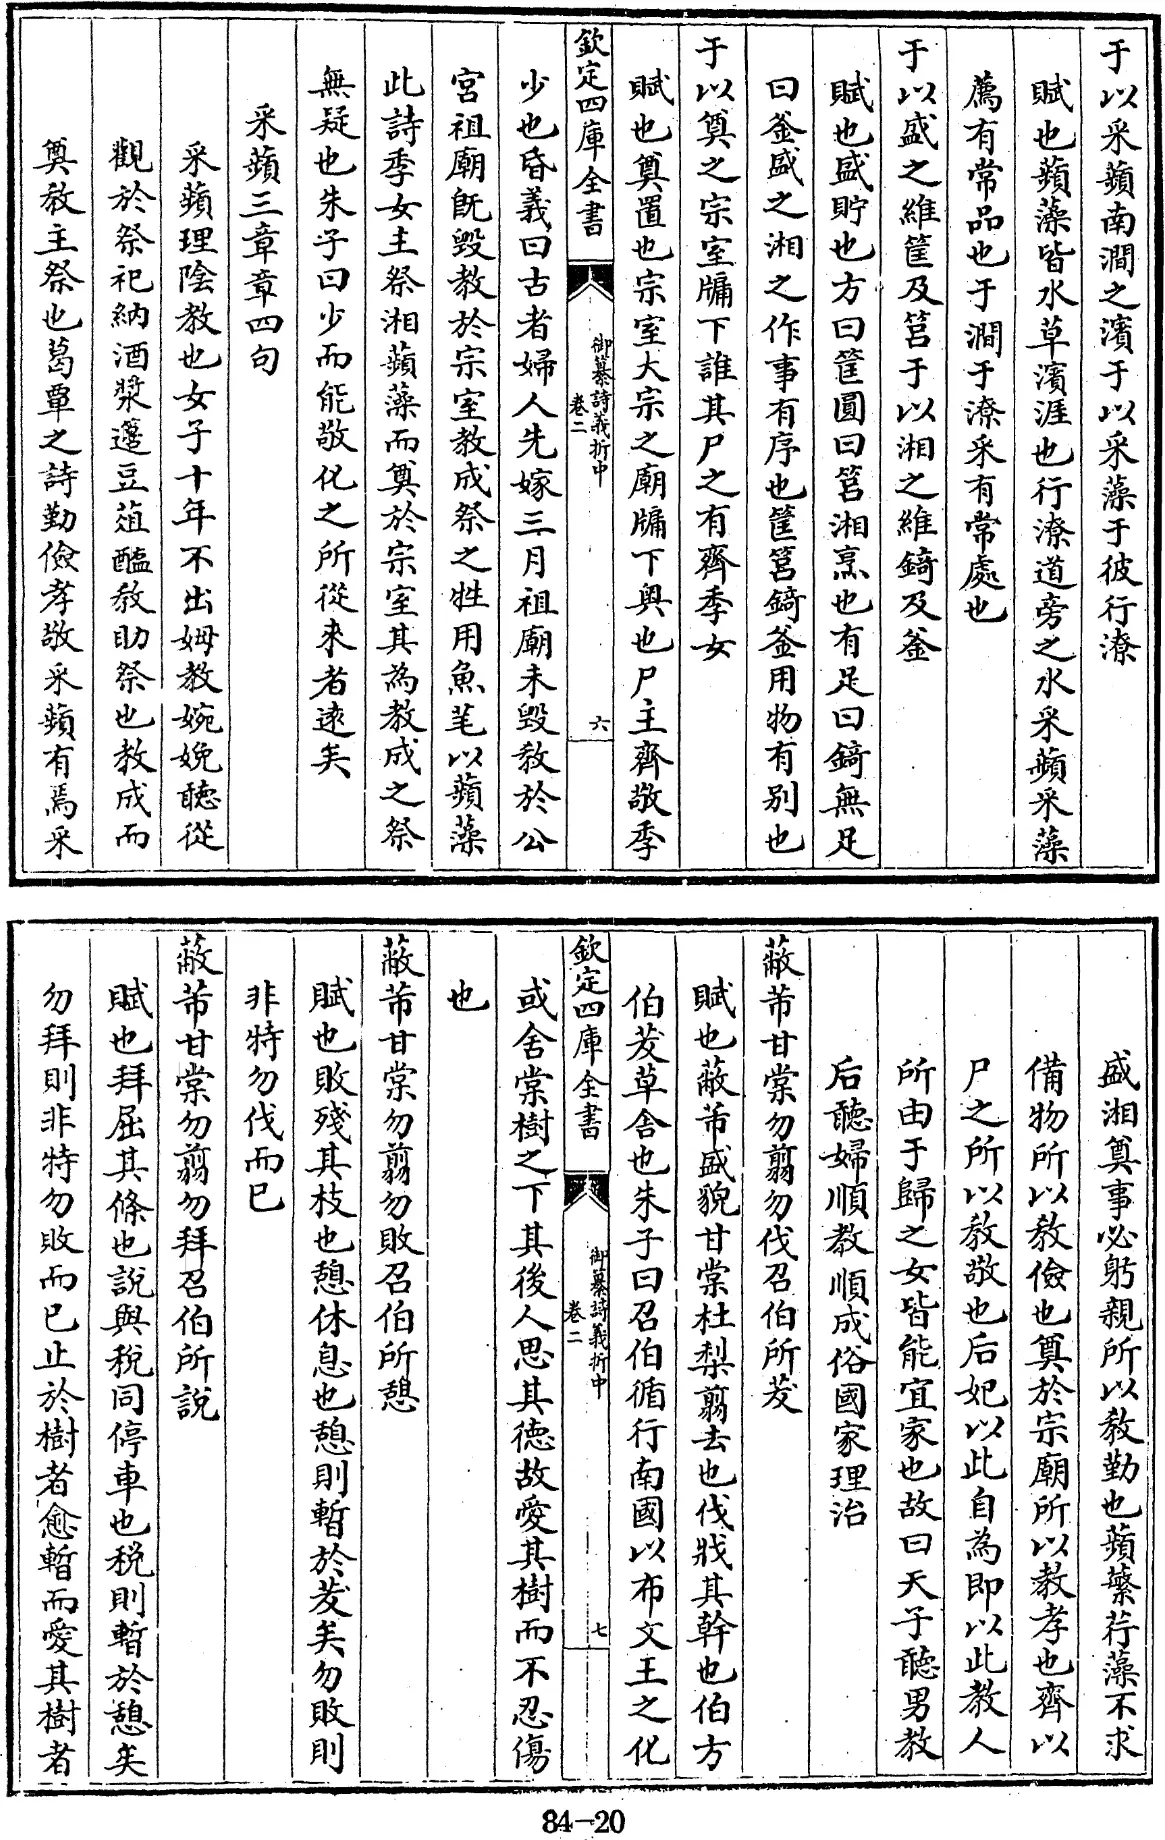 于以采蘋南澗之濱于以采藻于彼行潦
賦也蘋藻皆水草濱涯也行潦道旁之水采蘋采藻
薦有常品也于澗于潦采有常處也
于以盛之維筐及筥于以湘之維錡及釜
賦也盛貯也方曰筐圓曰筥湘烹也有足曰錡無足
曰釜盛之湘之作事有序也筐筥錡釜用物有别也
于以奠之宗室牖下誰其尸之有齊季女
賦也奠置也宗室大宗之廟牖下奥也尸主齊敬季
欽定四庫全書
御纂詩義折中
卷二
六
少也昏義曰古者婦人先嫁三月祖廟未毁教於公
宮祖廟既毁教於宗室教成祭之牲用魚芼以蘋藻
此詩季女主祭湘蘋藻而奠於宗室其為教成之祭
無疑也朱子曰少而能敬化之所從來者遠矣
采蘋三章章四句
采蘋理陰教也女子十年不出姆教婉娩聽從
觀於祭祀納酒漿籩豆菹醢教助祭也教成而
奠教主祭也葛覃之詩勤儉孝敬采蘋有焉采
盛湘奠事必躬親所以教勤也蘋蘩荇藻不求
備物所以教儉也奠於宗廟所以教孝也齊以
尸之所以教敬也后妃以此自為即以此教人
所由于歸之女皆能宜家也故曰天子聽男教
后聽婦順教順成俗國家理治
蔽芾甘棠勿翦勿伐召伯所茇
賦也蔽芾盛貌甘棠杜梨翦去也伐戕其幹也伯方
伯茇草舍也朱子曰召伯循行南國以布文王之化
欽定四庫全書
御纂詩義折中
卷二
七
或舍棠樹之下其後人思其德故愛其樹而不忍傷
也
蔽芾甘棠勿翦勿敗召伯所憩
賦也敗殘其枝也憩休息也憩則暫於茇矣勿敗則
非特勿伐而已
蔽芾甘棠勿翦勿拜召伯所說
賦也拜屈其條也說與税同停車也税則暫於憩矣
勿拜則非特勿敗而已止於樹者愈暫而愛其樹者
84-20